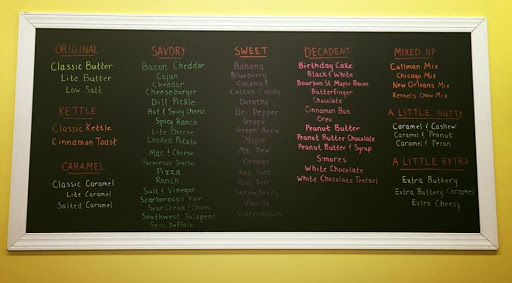 ORIGINAL
Classic Butter
Lite Butter
Low Salt
KETTLE
Classic Kettle
Cinnamon Toast
CARAMEL
Classic Caramel
Lite Caramel
Salted Caramel
SAVORY
Bacon Cheddar
Cajun
Cheddar
Cheeseburger
Dill Pickle
Hot & Spicy Cheese
Spicy Ranch
Lite Cheese
Loaded Potato
Mac & Cheese
Parmesan Garlic
Pizza
Ranch
Salt & Vinegar
Scarborough Fair
Sour Cream & Onion
Southwest Jalapeno
Buffalo
SWEET
Banana
Blueberry
Coconut
Cotton Candy
Dorothy
Dr. Pepper
Grape
Green Apple
Maple
Mt. Dew
Orange
Root Beer
Strawberry
Vanilla
Watermelon
DECADENT
Birthday Cake
Black & White
Bourbon St. Maple Bacon
Butterfinger
Chocolate
Cinnamon Bun
Oreo
Peanut Butter
Peanut Butter Chocolate
Peanut Butter & Syrup
S'mores
White Chocolate
White Chocolate Pretzel
MIXED UP
Cullman Mix
Chicago Mix
New Orleans Mix
Kernels Chow Mix
A LITTLE NUTTY
Caramel & Cashew
Caramel & Peanut
Caramel & Pecan
A LITTLE EXTRA
Extra Buttery
Extra Buttery Caramel
Extra Cheesy